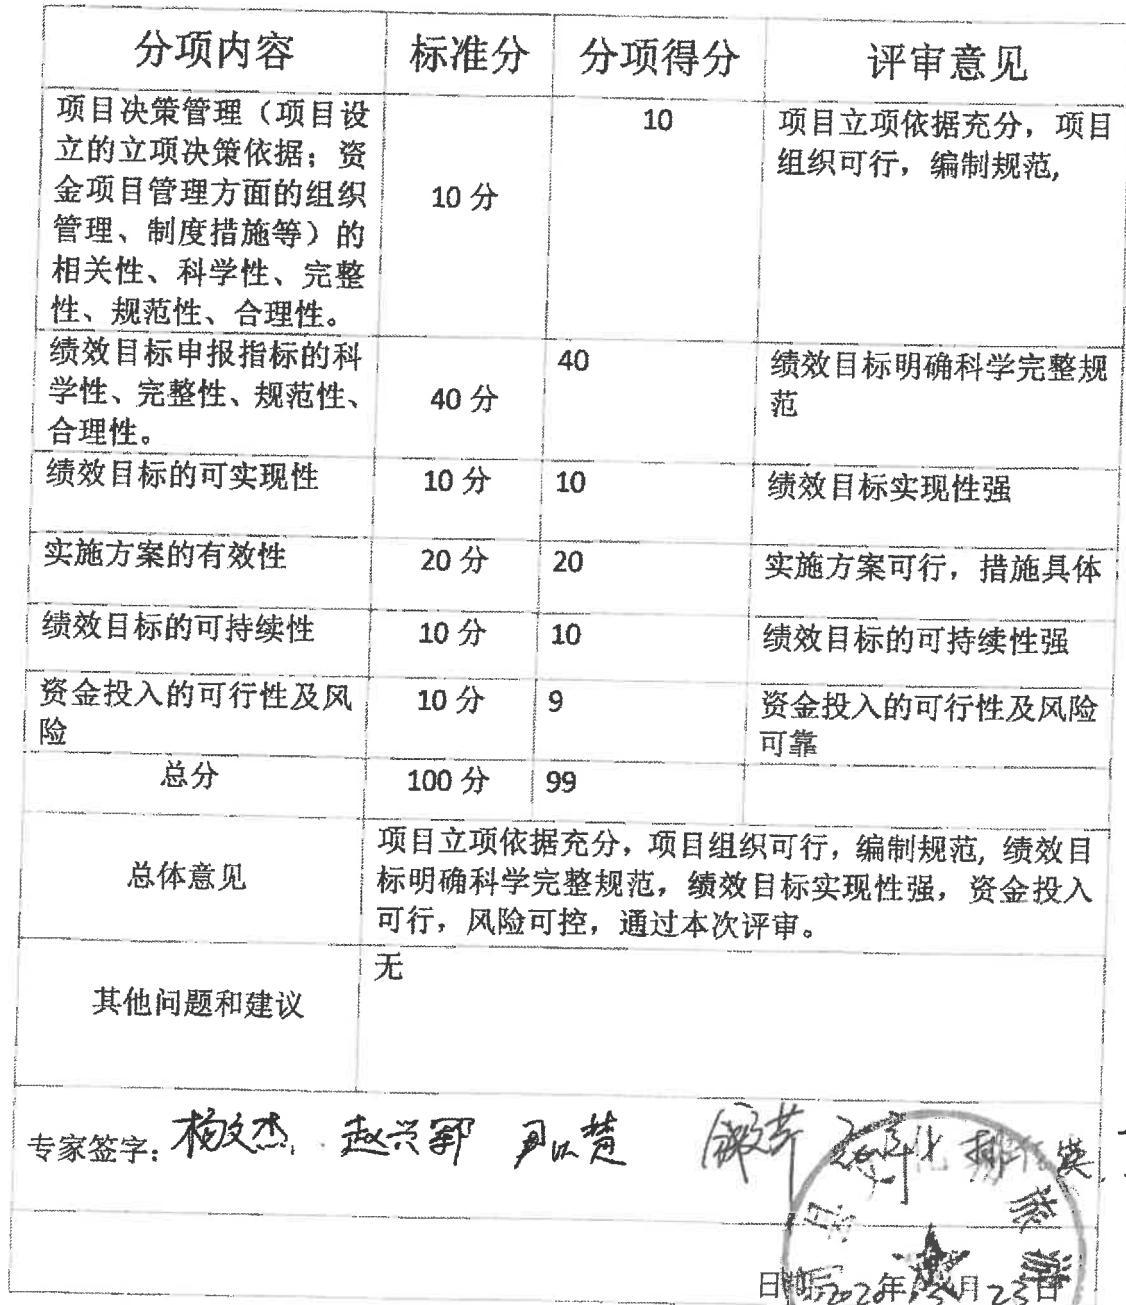 分项内容 标准分 分项得分 评审意见
项目决策管理（项目设
立的立项决策依据；资
金项目管理方面的组织
管理、制度措施等）的
相关性、科学性、完整
性、规范性、合理性。
10 分
10
项目立项依据充分，项目
组织可行，编制规范,
绩效目标申报指标的科
学性、完整性、规范性、
合理性。
40 分
40
绩效目标明确科学完整规
范
绩效目标的可实现性 10 分 10 绩效目标实现性强
实施方案的有效性 20 分 20 实施方案可行，措施具体
绩效目标的可持续性 10 分 10 绩效目标的可持续性强
资金投入的可行性及风
险
10 分 9
资金投入的可行性及风险
可靠
总分 100 分 99
总体意见
项目立项依据充分，项目组织可行，编制规范, 绩效目
标明确科学完整规范，绩效目标实现性强，资金投入
可行，风险可控，通过本次评审。
其他问题和建议
无
专家签字： 杨文杰 赵兴郓
日期 2020年 月23日